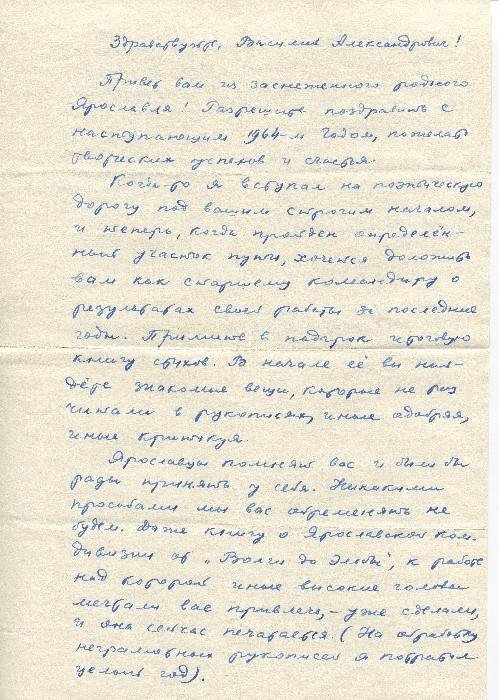 Здравствуйте, Василий Александрович!
Привет вам из заснеженного родного
Ярославля! Разрешите поздравить с
наступающим 1964-м годом, пожелать
творческих успехов и счастья.
Когда-то я вступал на поэтическую
дорогу под вашим строгим началом,
и теперь, когда пройден определён-
ный участок пути, хочется доложить
вам как старшему командиру о
результатах своей работы за последние
годы. Примите в подарок итоговую
книгу стихов. В начале её вы най-
дёте знакомые вещи, которые не раз
читали в рукописях, иные одобряя,
иные критикуя.
Ярославцы помнят вас и были бы
рады принять у себя. Никакими
просьбами мы вас обременять не
будем. Даже книгу о Ярославской ком.
дивизии от „Волги до Эльбы", к работе
над которой иные высокие головы
мечтали вас привлечь, – уже сделали,
и она сейчас печатается. (На обработку
неграмотных рукописей я потратил
целый год).